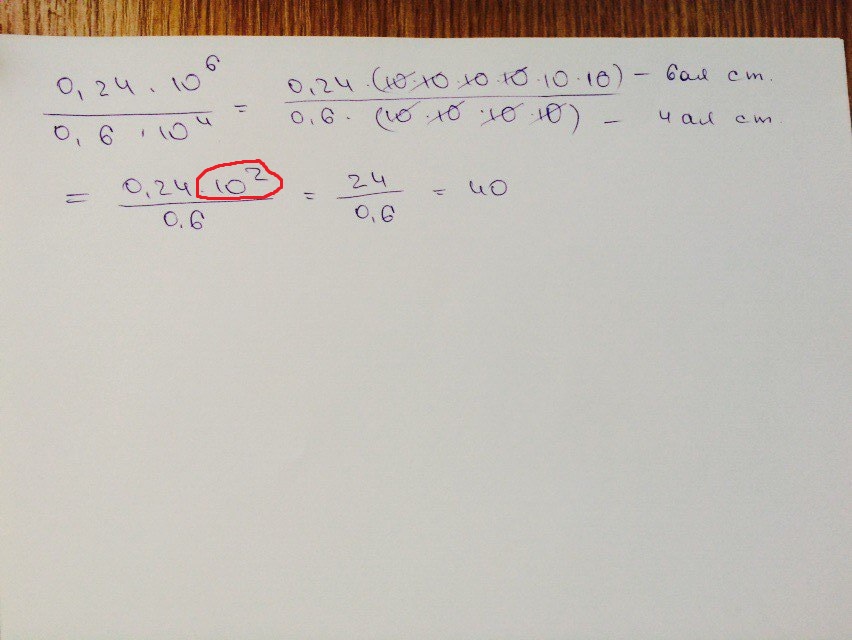 0,24 · 10⁶ / 0,6 · 10⁴ = 0,24 · (10·10·10·10·10·10) – 6ая ст. / 0,6 · (10·10·10·10) – 4ая ст.
= 0,24·10² / 0,6 = 24 / 0,6 = 40